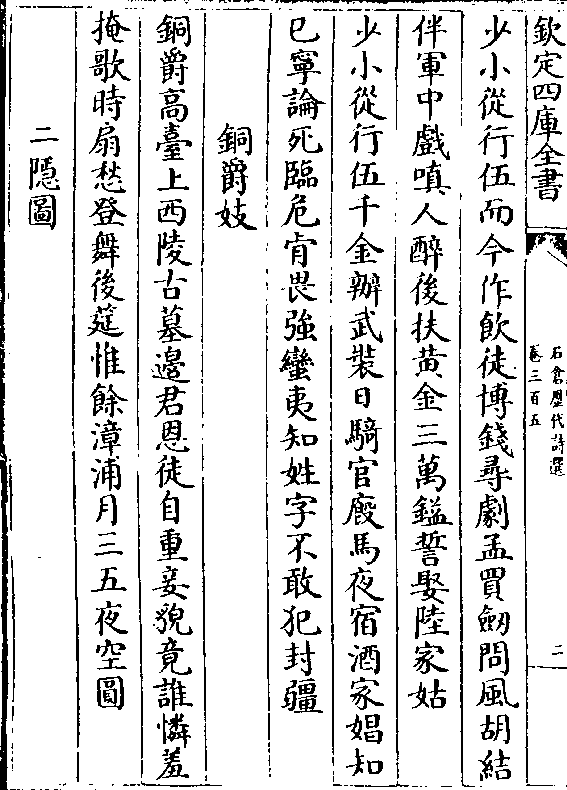 欽定四庫全書
石倉歴代詩選
卷三百五
二
少小從行伍而今作飲徒博錢尋劇孟買劒問風胡結
伴軍中戲嗔人醉後扶黄金三萬鎰誓娶陸家姑
少小從行伍千金辦武裝日騎官廐馬夜宿酒家娼知
已寧論死臨危肯畏強蠻夷知姓字不敢犯封疆
銅爵妓
銅爵高臺上西陵古墓邉君恩徒自重妾貌竟誰憐羞
掩歌時扇愁登舞後筵惟餘漳浦月三五夜空圓
二隱圖